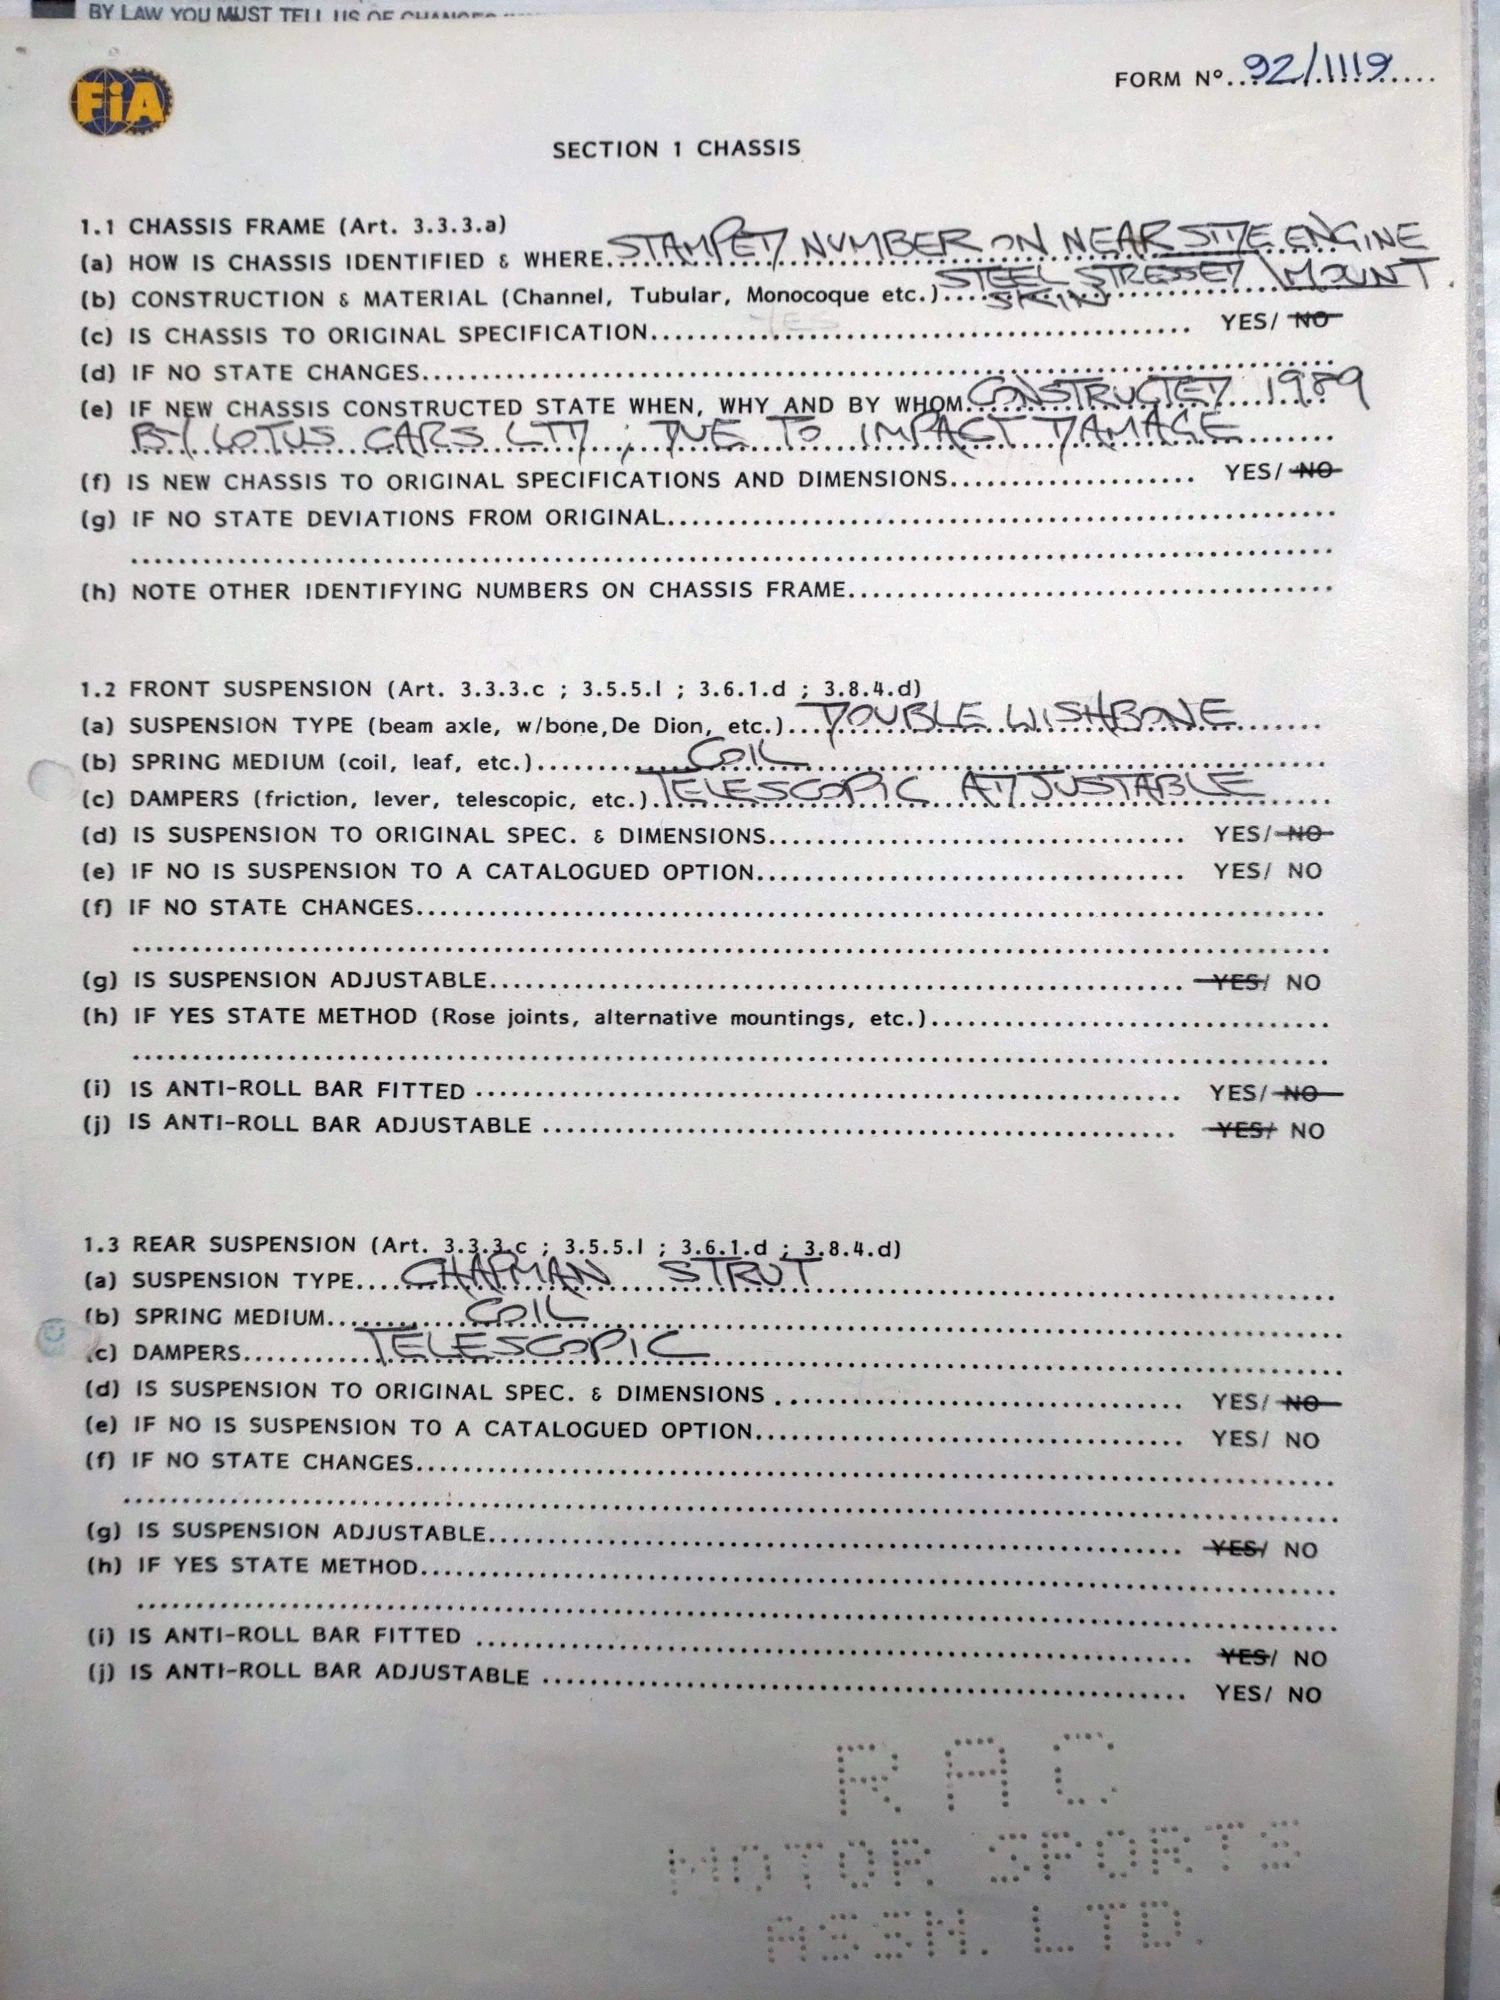 BY LAW YOU MUST TELL US OF CHANGES
FiA
FORM Nº...92/1119.....
SECTION 1 CHASSIS
1.1 CHASSIS FRAME (Art. 3.3.3.a)
(a) HOW IS CHASSIS IDENTIFIED & WHERE. STAMPED NUMBER ON NEAR SIDE ENGINE
MOUNT.
(b) CONSTRUCTION & MATERIAL (Channel, Tubular, Monocoque etc.) STEEL STRESSED
SKIN
(c) IS CHASSIS TO ORIGINAL SPECIFICATION........ YES/ NO
(d) IF NO STATE CHANGES........
(e) IF NEW CHASSIS CONSTRUCTED STATE WHEN, WHY AND BY WHOM CONSTRUCTED 1989
BY LOTUS CARS LTD ; DUE TO IMPACT DAMAGE
(f) IS NEW CHASSIS TO ORIGINAL SPECIFICATIONS AND DIMENSIONS........ YES/ NO
(g) IF NO STATE DEVIATIONS FROM ORIGINAL........
(h) NOTE OTHER IDENTIFYING NUMBERS ON CHASSIS FRAME........
1.2 FRONT SUSPENSION (Art. 3.3.3.c ; 3.5.5.l ; 3.6.1.d ; 3.8.4.d)
(a) SUSPENSION TYPE (beam axle, w/bone,De Dion, etc.).... DOUBLE WISHBONE
(b) SPRING MEDIUM (coil, leaf, etc.)........ COIL
(c) DAMPERS (friction, lever, telescopic, etc.). TELESCOPIC ADJUSTABLE
(d) IS SUSPENSION TO ORIGINAL SPEC. & DIMENSIONS........ YES/ NO
(e) IF NO IS SUSPENSION TO A CATALOGUED OPTION........ YES/ NO
(f) IF NO STATE CHANGES........
(g) IS SUSPENSION ADJUSTABLE........ YES/ NO
(h) IF YES STATE METHOD (Rose joints, alternative mountings, etc.)........
(i) IS ANTI-ROLL BAR FITTED ........ YES/ NO
(j) IS ANTI-ROLL BAR ADJUSTABLE ........ YES/ NO
1.3 REAR SUSPENSION (Art. 3.3.3.c ; 3.5.5.l ; 3.6.1.d ; 3.8.4.d)
(a) SUSPENSION TYPE.... CHAPMAN STRUT
(b) SPRING MEDIUM........ COIL
(c) DAMPERS........ TELESCOPIC
(d) IS SUSPENSION TO ORIGINAL SPEC. & DIMENSIONS ........ YES/ NO
(e) IF NO IS SUSPENSION TO A CATALOGUED OPTION........ YES/ NO
(f) IF NO STATE CHANGES........
(g) IS SUSPENSION ADJUSTABLE........ YES/ NO
(h) IF YES STATE METHOD........
(i) IS ANTI-ROLL BAR FITTED ........ YES/ NO
(j) IS ANTI-ROLL BAR ADJUSTABLE ........ YES/ NO
RAC
MOTOR SPORTS
ASSN. LTD.